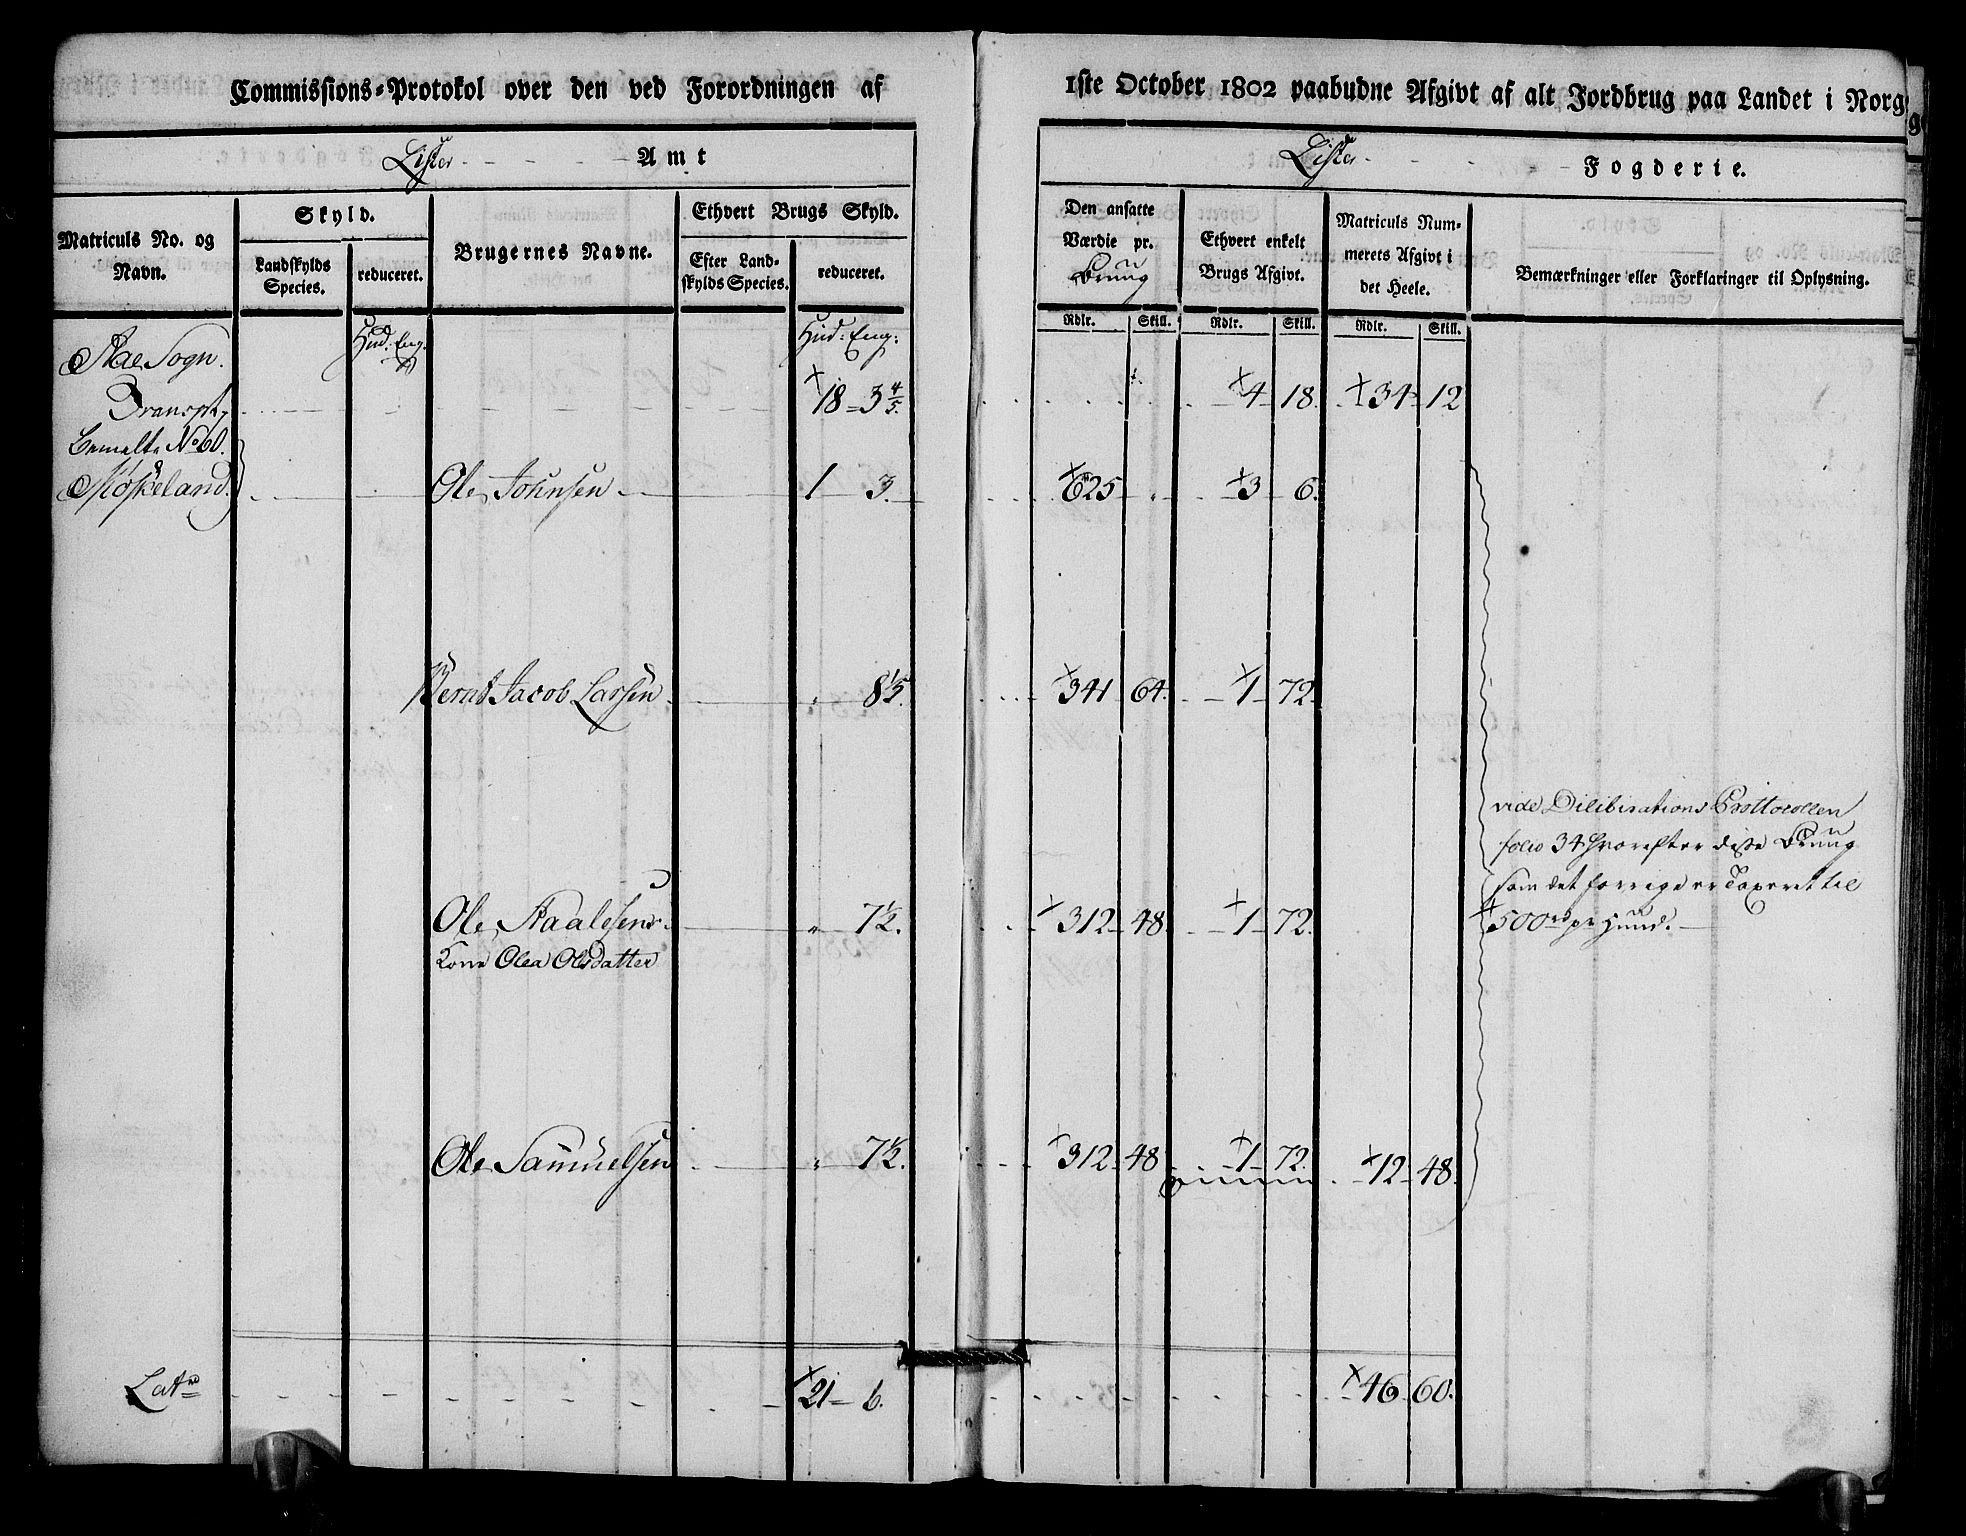 Commissions-Protokol over den ved Forordningen af
1ste October 1802 paabudne Afgivt af alt Jordbrug paa Landet i Norg
Lister Amt
Lister Fogderie.
Matriculs No. og Navn.
Skyld.
Landskylds Species.
reduceret.
Brugernes Navne.
Ethvert Brugs Skyld.
Efter Landskylds Species.
reduceret.
Den ansatte Værdie pr. Bruug
Ethvert enkelt Brugs Afgivt.
Matriculs Nummerets Afgivt i det Heele.
Bemærkninger eller Forklaringer til Oplysning.
Rdlr. Skill. Rdlr. Skill. Rdlr. Skill.
Hud: Eng. Hud: Eng:
Sogn.
Transpt, 18 3 4/5. 4 18. 34 12
No 60.
Ole Johnsen 1 3. 625 3 6.
Bernt Jacob Larsen 8 1/5. 341 64. 1 72
vide Dilibirations Prottocollen
folio 34 hvorefter disse Bruug
som det forrige er Taxeret til
500 rd pr Huud.
Ole Aaalesens 7 1/2. 312 48. 1 72.
Kone Olea Olsdatter
Ole Samuelsen 7 1/2. 312 48 1 72. 12 48.
Lat 21 6. 46 60.